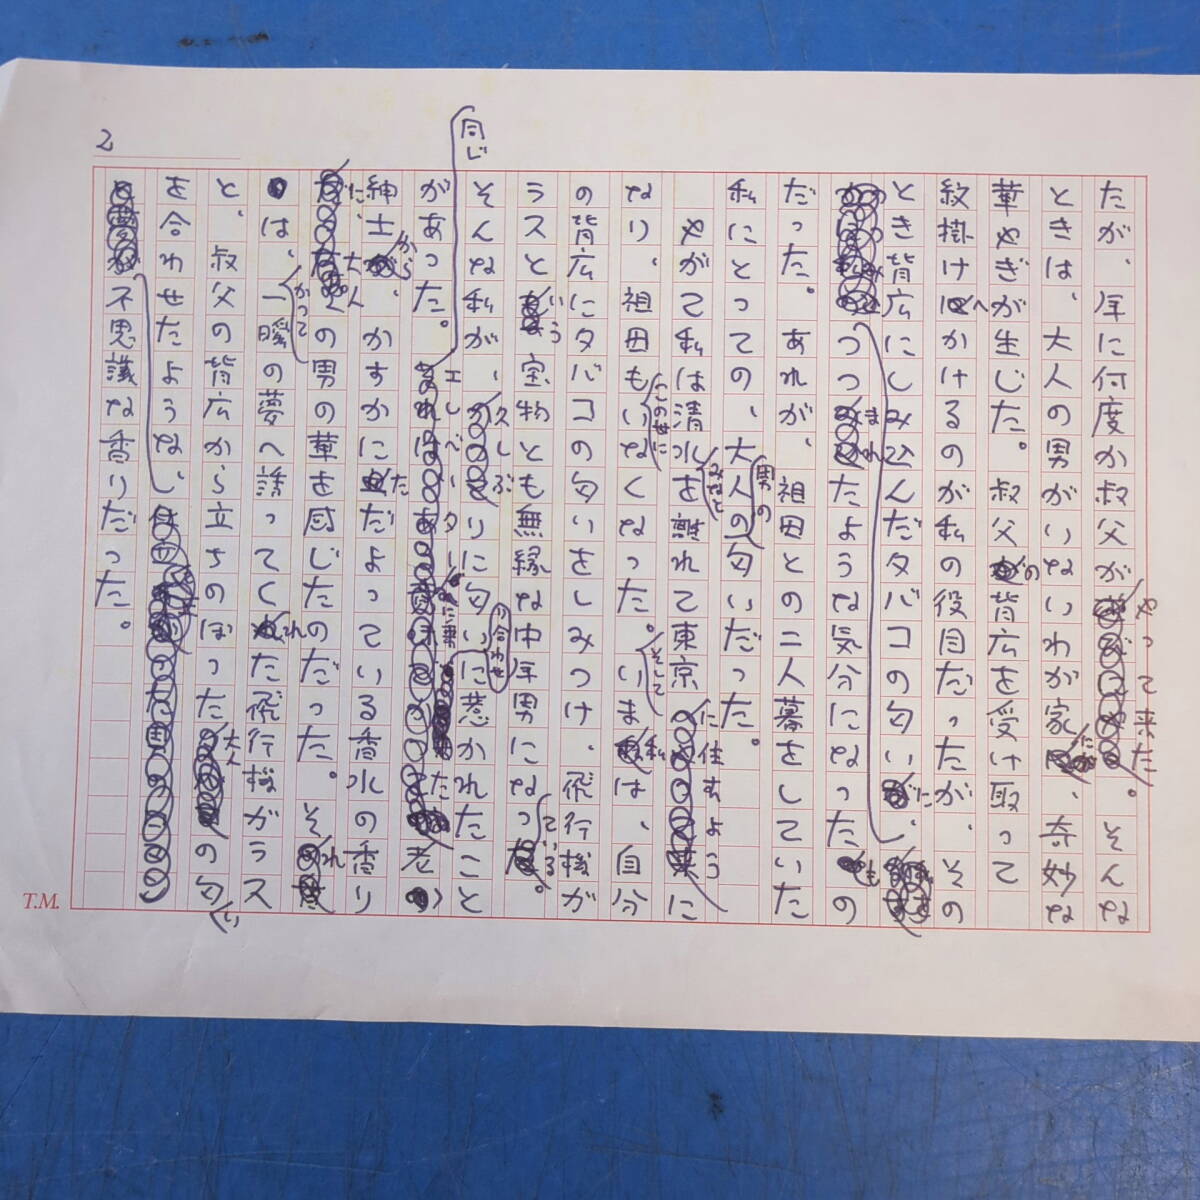 2
たが、年に何度か叔父がやって来た。そんな
ときは、大人の男がいないわが家に、奇妙な
華やぎが生じた。叔父の背広を受け取って
紋掛けへかけるのが私の役目だったが、その
とき背広にしみ込んだタバコの匂いに、
つつまれたような気分になったの
も
だった。あれが、祖母との二人暮をしていた
私にとっての、大人の男の匂いだった。
やがて私は清水みなとを離れて東京に住むように
なり、祖母もこの世にいなくなった。そしていま私は、自分
の背広にタバコの匂いをしみつけ、飛行機が
ラスという宝物とも無縁な中年男になっている。
そんな私が、久しぶりに匂いに惹かれたこと
があった。
同じ
エレベーターに乗り合わせた老
紳士から、かすかにただよっている香水の香り
に、大人の男の華を感じたのだった。それ
は、かつて一瞬の夢へ誘ってくれた飛行機がラス
と、叔父の背広から立ちのぼった大人の匂い
を合わせたような、
不思議な香りだった。
T.M.